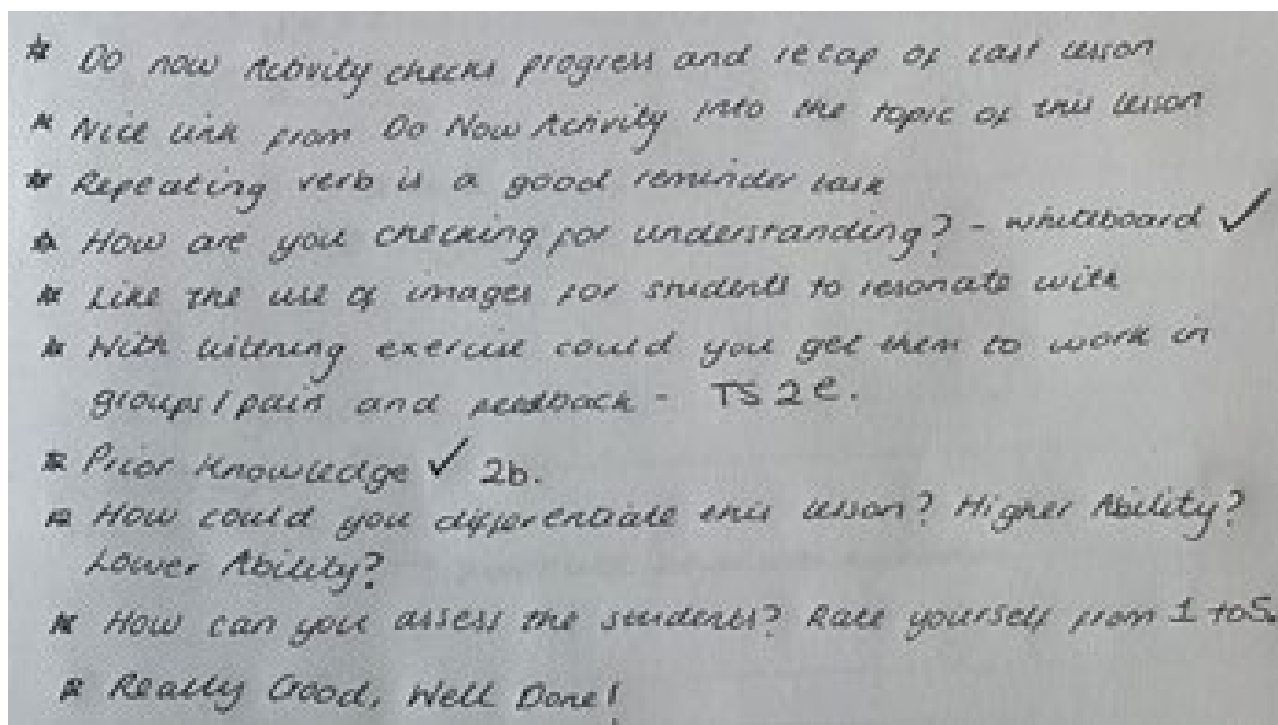 * Do now Activity checks progress and recap of last lesson
* Nice link from Do Now Activity into the topic of this lesson
* Repeating verb is a good reminder task
* How are you checking for understanding? - whiteboard ✓
* Like the use of images for students to resonate with
* With listening exercise could you get them to work in
groups/pairs and feedback - TS 2e.
* Prior Knowledge ✓ 2b.
* How could you differentiate this lesson? Higher Ability?
Lower Ability?
* How can you assess the students? Rate yourself from 1 to 5.
* Really Good, Well Done!